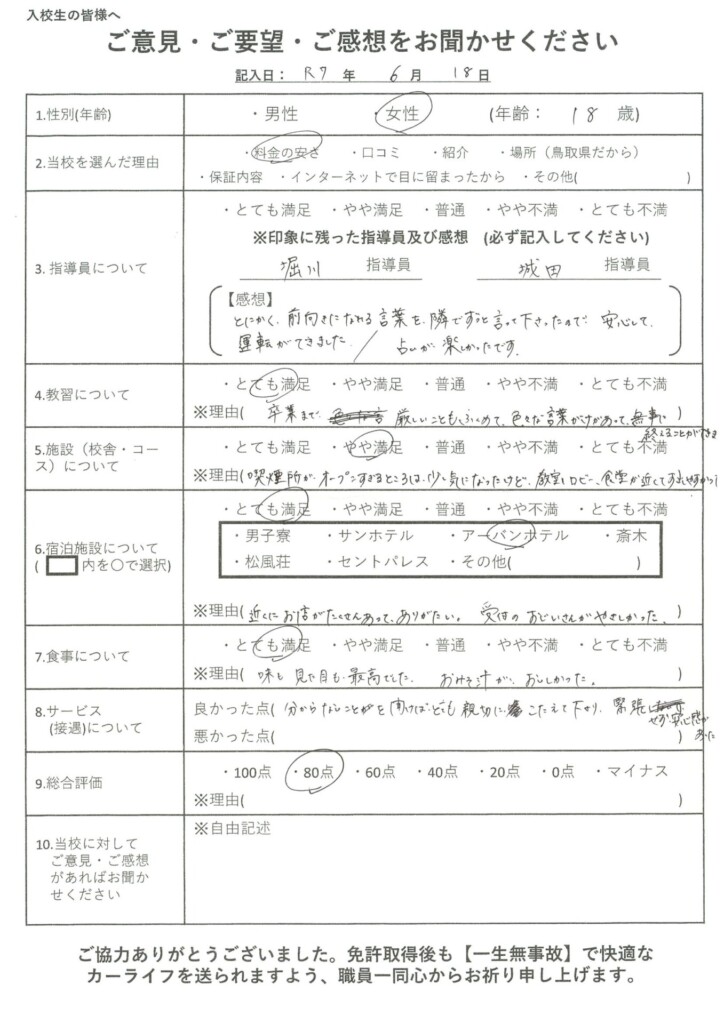 入校生の皆様へ
ご意見・ご要望・ご感想をお聞かせください
記入日： R7 年 6 月 18 日
1.性別(年齢) ・男性 ・女性 (年齢： 18 歳)
2.当校を選んだ理由 ・料金の安さ ・口コミ ・紹介 ・場所（鳥取県だから）
・保証内容 ・インターネットで目に留まったから ・その他( )
3. 指導員について ・とても満足 ・やや満足 ・普通 ・やや不満 ・とても不満
※印象に残った指導員及び感想 (必ず記入してください)
堀川 指導員 城田 指導員
【感想】
とにかく、前向きになれる言葉を、隣でずっと言って下さったので、安心して、
運転ができました。／ 占いが、楽しかったです。
4.教習について ・とても満足 ・やや満足 ・普通 ・やや不満 ・とても不満
※理由( 卒業まで、 厳しいこともふくめて、色々な言葉がけがあって、無事に )
終えることができま
5.施設（校舎・コース）について ・とても満足 ・やや満足 ・普通 ・やや不満 ・とても不満
※理由(喫煙所が、オープンすぎるところは、少し気になったけど、教室、ロビー、食堂が近くて
6.宿泊施設について
( 内を〇で選択) ・とても満足 ・やや満足 ・普通 ・やや不満 ・とても不満
・男子寮 ・サンホテル ・アーバンホテル ・斎木
・松風荘 ・セントパレス ・その他( )
※理由( 近くにお店がたくさんあって、ありがたい。 受付のおじいさんがやさしかった。 )
7.食事について ・とても満足 ・やや満足 ・普通 ・やや不満 ・とても不満
※理由( 味も見た目も、最高でした。 おみそ汁が、おいしかった。 )
8.サービス
(接遇)について 良かった点( 分からないことがを聞けばとても親切に こたえて下さり、緊張
せず、安心感が
あった
悪かった点( )
9.総合評価 ・100点 ・80点 ・60点 ・40点 ・20点 ・0点 ・マイナス
※理由( )
10.当校に対して
ご意見・ご感想
があればお聞か
せください ※自由記述
ご協力ありがとうございました。免許取得後も【一生無事故】で快適な
カーライフを送られますよう、職員一同心からお祈り申し上げます。